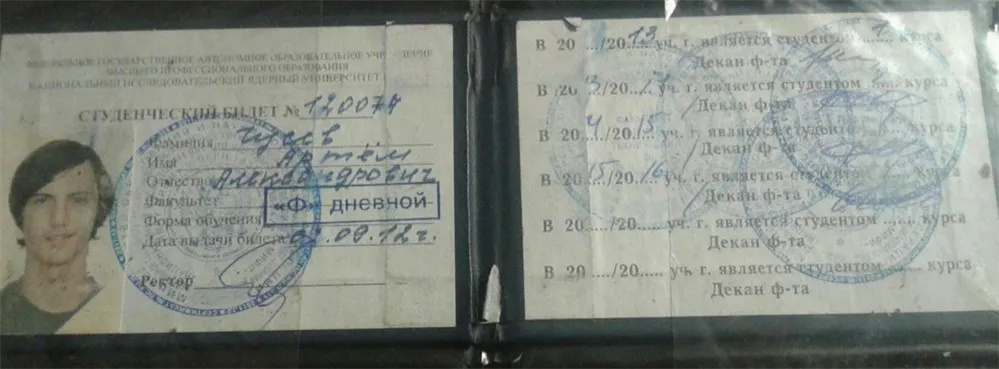 ФЕДЕРАЛЬНОЕ ГОСУДАРСТВЕННОЕ АВТОНОМНОЕ ОБРАЗОВАТЕЛЬНОЕ УЧРЕЖДЕНИЕ
ВЫСШЕГО ПРОФЕССИОНАЛЬНОГО ОБРАЗОВАНИЯ
НАЦИОНАЛЬНЫЙ ИССЛЕДОВАТЕЛЬСКИЙ ЯДЕРНЫЙ УНИВЕРСИТЕТ
СТУДЕНЧЕСКИЙ БИЛЕТ № 120074
Фамилия
Имя Артём
Отчество Александрович
Факультет
«Ф» дневной
Форма обучения
Дата выдачи билета .09.12г.
Ректор
В 20..../20 13 уч. г. является студентом 1 курса
Декан ф-та
В 20 /20 уч. г. является студентом курса
Декан ф-та
В 20 /20 15 уч. г. является студентом курса
Декан ф-та
В 20 15 /20 16 уч. г. является студентом курса
Декан ф-та
В 20...../20..... уч. г. является студентом ....... курса
Декан ф-та
В 20...../20..... уч. г. является студентом ....... курса
Декан ф-та